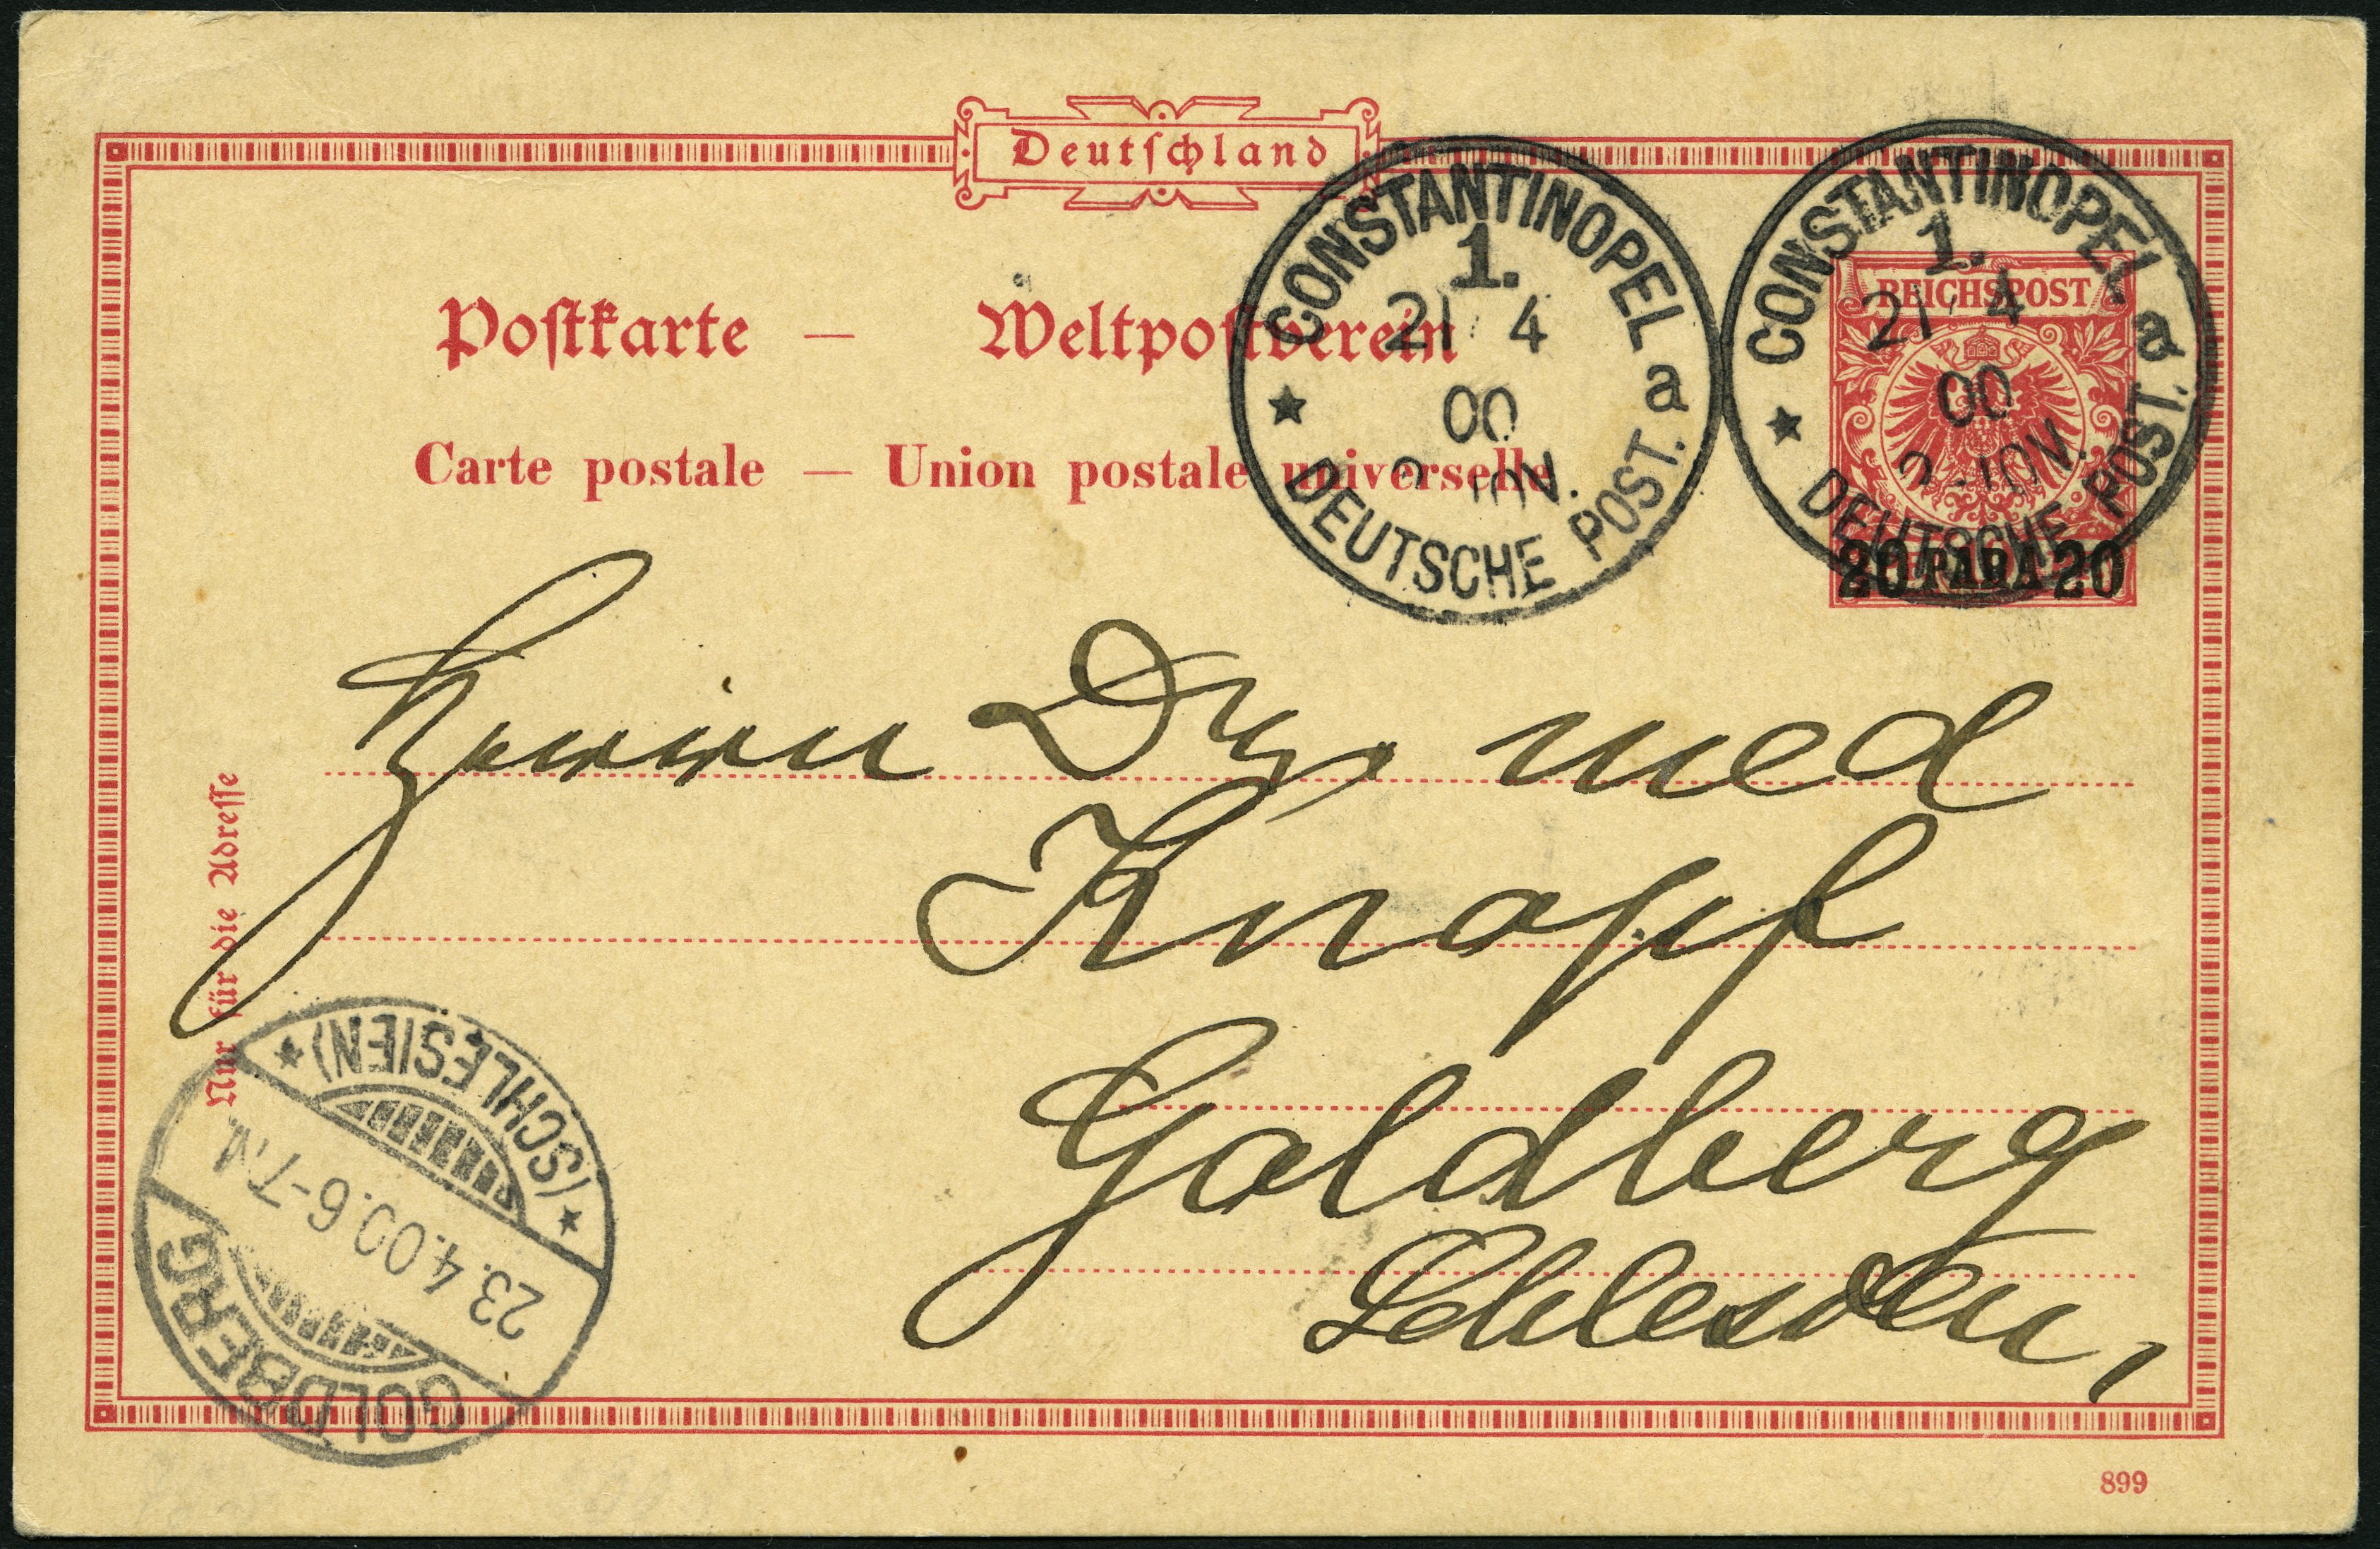 Deutschland
Postkarte — Weltpostverein
Carte postale — Union postale universelle
CONSTANTINOPEL a
1.
21/4
00
DEUTSCHE POST.
CONSTANTINOPEL a
1.
21/4
00
2-10N.
DEUTSCHE POST.
REICHSPOST
20 PARA 20
Herrn Dr. med
Knopf
Goldberg
Schlesien,
Nur für die Adresse
GOLDBERG
23.4.00.6-7N.
(SCHLESIEN)
899